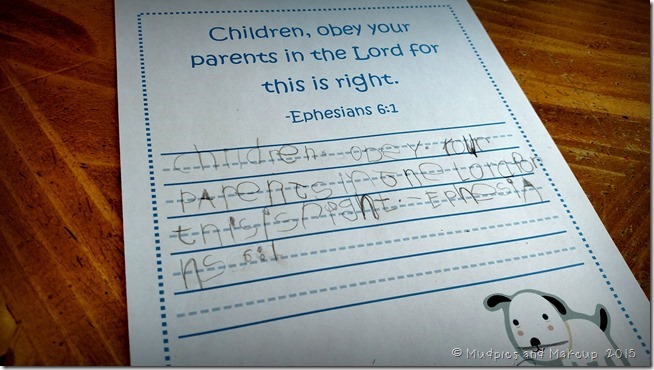 Children, obey your
parents in the Lord for
this is right.
-Ephesians 6:1
children, obey your
pArents in the Lord for
this is right. - Ephesia
ns 6:1
© Mudpies and Makeup 2015